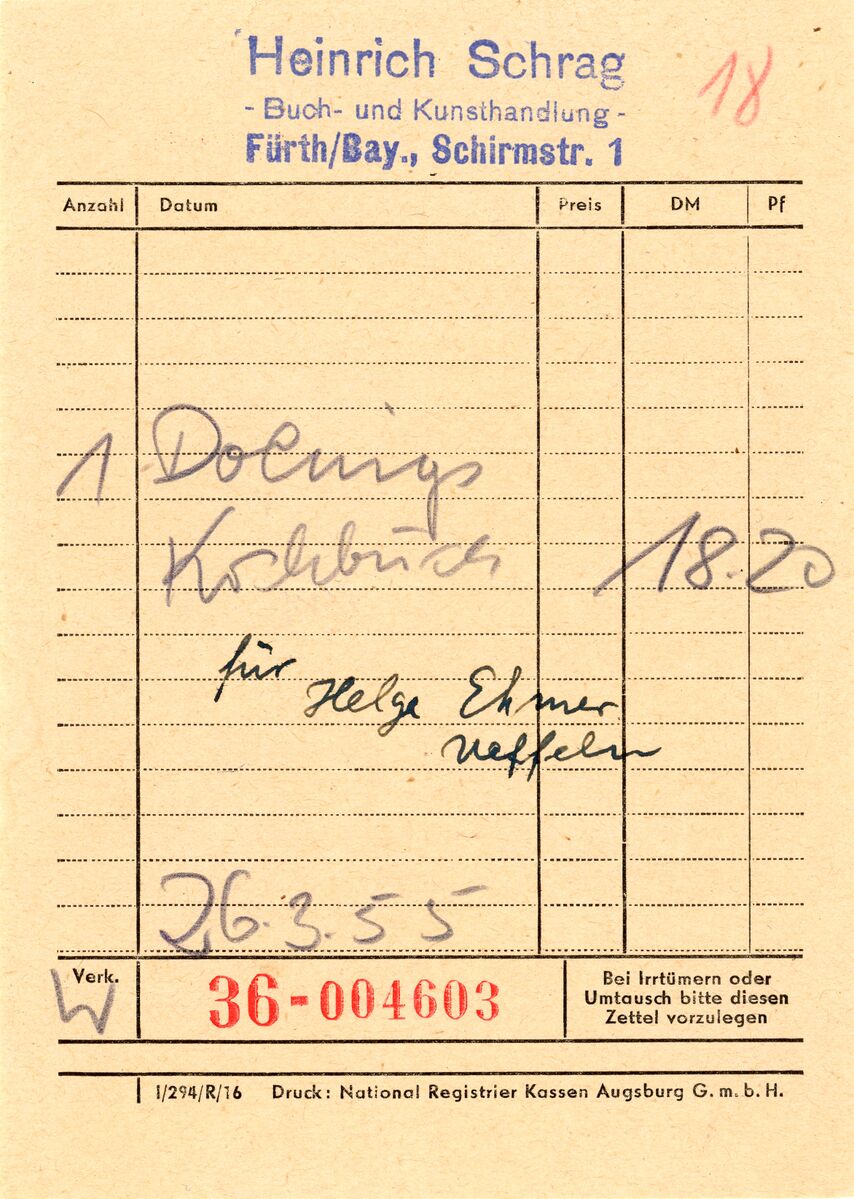 Heinrich Schrag
- Buch- und Kunsthandlung -
Fürth/Bay., Schirmstr. 1
18
Anzahl Datum Preis DM Pf
1 Doenigs
Kochbuch 18.20
für Helge Ehmer
26.3.55
Verk. W
36-004603
Bei Irrtümern oder
Umtausch bitte diesen
Zettel vorzulegen
I/294/R/16 Druck: National Registrier Kassen Augsburg G.m.b.H.